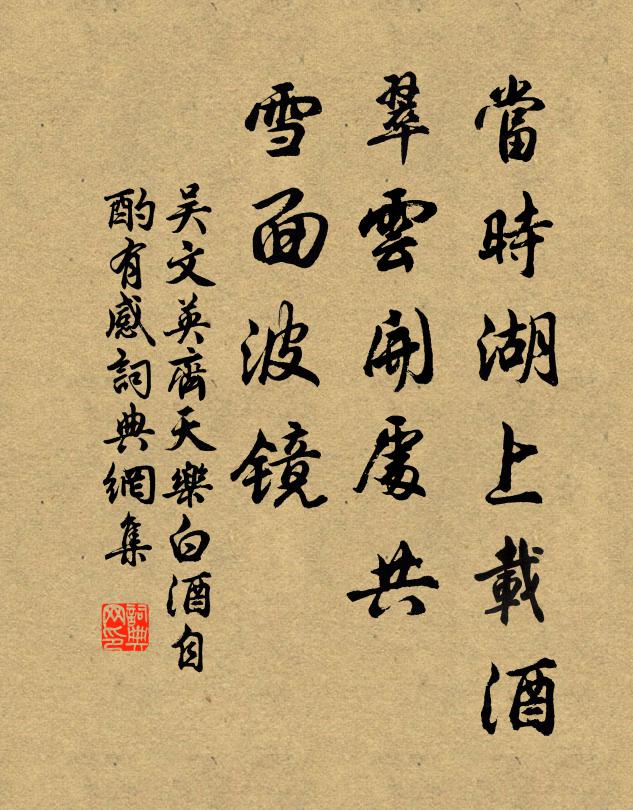 當時湖上載酒
翠雲開處共
雪面波鏡
吴文英齊天樂白酒自
酌有感詞典網集
詞典
网印